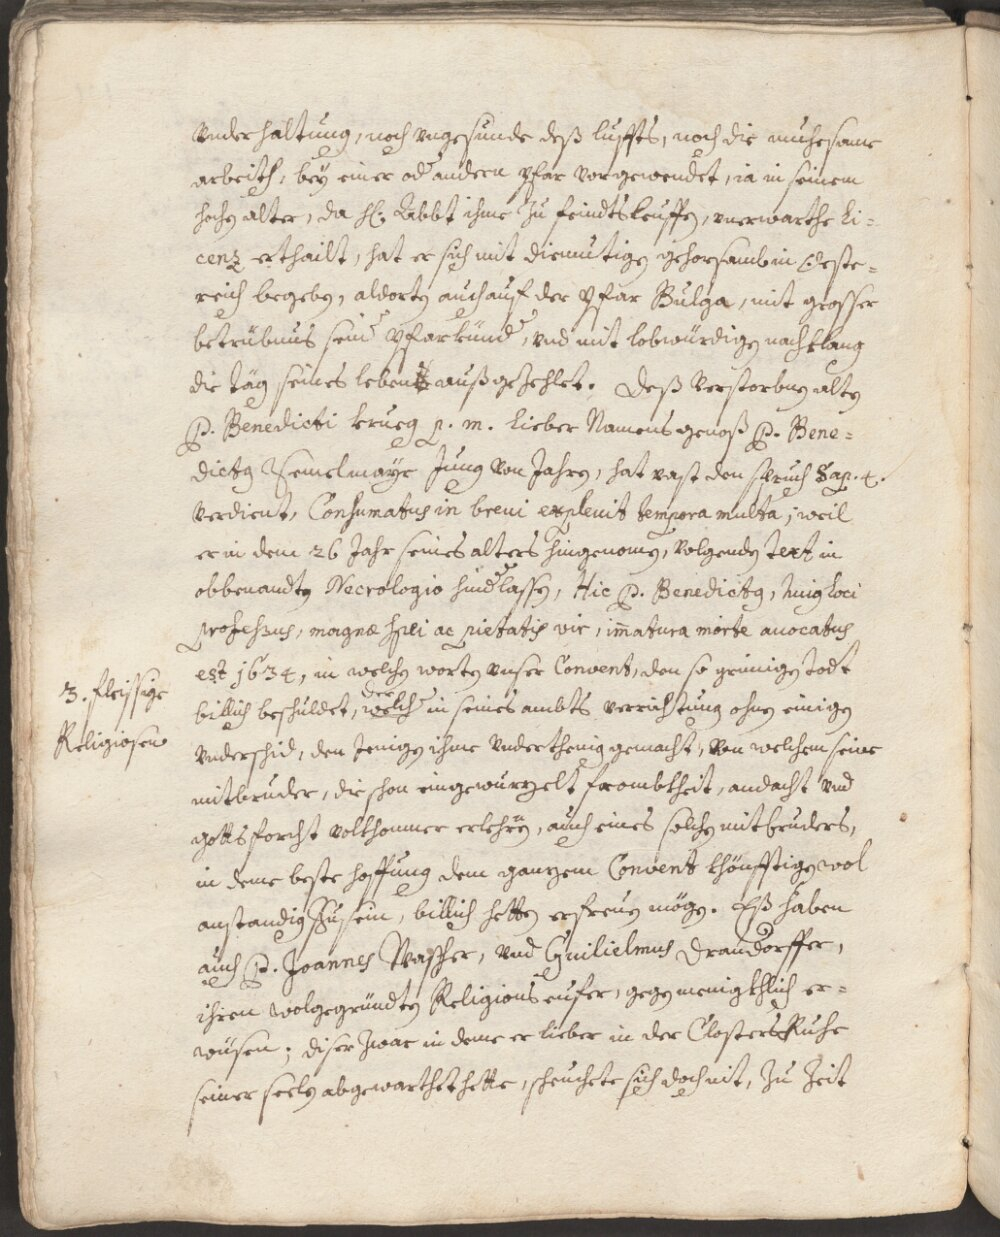 vnderhaltung, noch vngesunde deß luffts, noch die muhesame
arbeith, bey einer od andern pfar vorgewendet, ia in seinem
hochen alter, da H. Abbt ihme zu feindtsleuffen, vnerwarthe Li=
cenz erthailt, hat er sich mit diemutigen gehorsamb in Oeste=
reich begeben, aldorten auch auf der Pfar Bulga, mit grosser
betrübnus seind Pfarkünd, vnd mit lobwürdigen nachklang
die täg seines lebens außgezehlet. Deß verstorbnen alten
P. Benedicti Krueg p. m. lieber Namensgenoß P. Bene=
dictus Semelmayr Jung von Jahren, hat vast den spruch Sap. 4.
verdient, Consumatus in breui expleuit tempora multa; weil
er in dem 26 Jahr seines alters hingenomen, volgenden text in
obbenandten Necrologio hindlassen, Hic P. Benedictus, huius loci
professus, magnæ spei ac pietatis vir, immatura morte auocatus
est 1634, in welchen worten vnser Convent, den so grimigen todt
billich beschuldet, welch der in seines ambts verrichtung ohne einigen
vnderschid, den Jenigen ihme vnderthenig gemacht, von welchem seine
3. fleissige
Religiosen
mitbruder, die schon eingewurzelt frombkheit, andacht vnd
gottsforcht volkhommer erlehrnen, auch eines solchen mitbruders,
in deme beste hoffnung dem ganzem Convent khönfftigen wol
anstandig zusein, billich hetten erfreuen mögen. Eß haben
auch P. Joannes Wascher, vnd Guilielmus Drandorffer,
ihren wolgegründten Religions eufer, gegen menigkhlich er=
wüsen; diser zwar in deme er lieber in der Closters Ruhe
seiner seelen abgewarthet hette, scheuchete sich doch nit, zu zeit